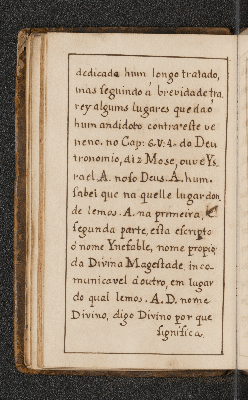 dedicada hum longo tratado,
mas seguindo á brevidade tra
rey alguns lugares que daó
hum andidoto contra este ve
neno. no Cap: 6. V: 4. do Deu
tronomio, diz Mose, ouve Ys
rael .A. noso Deus .A. hum.
sabei que na quelle lugar don
de lemos .A. na primeira, é
segunda parte, esta escripto
ó nome Ynefable, nome propio
da Divina Magestade, inco-
municavel á outro, em lugar
do qual lemos . A. D. nome
Divino, digo Divino por que
significa